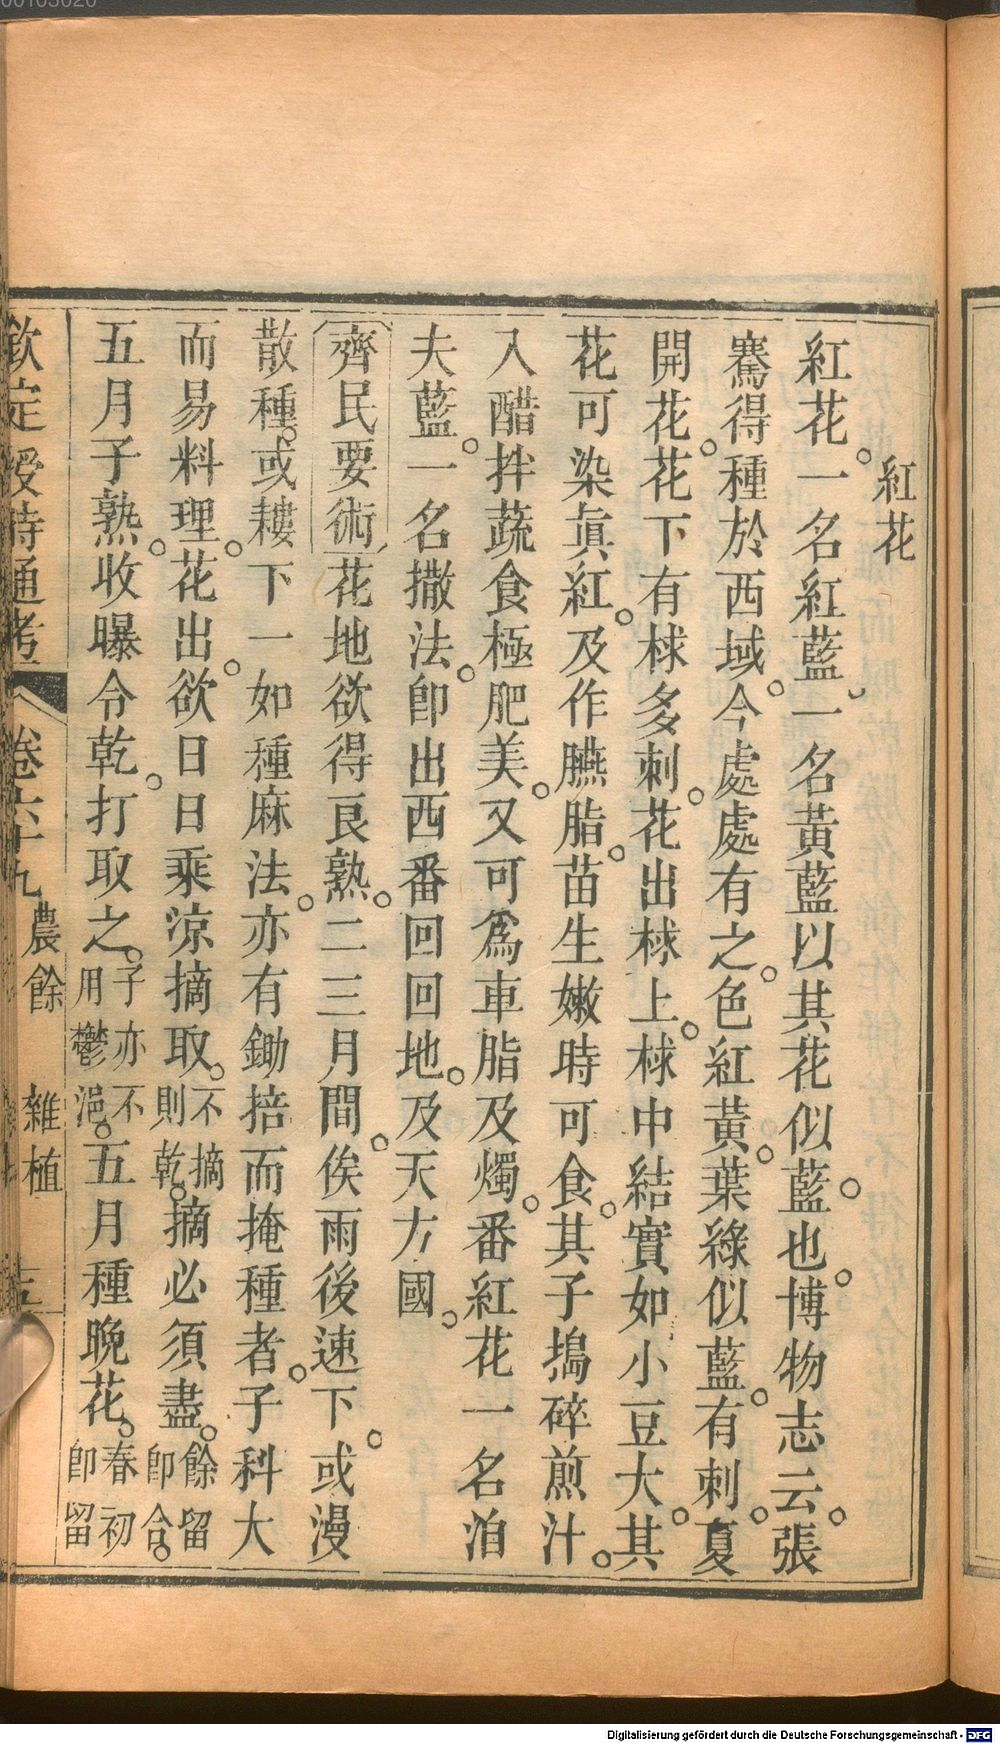 00103020
紅花
紅花。一名紅藍、一名黃藍以其花似藍也。博物志云。張
騫得種於西域。今處處有之。色紅黃。葉綠似藍。有刺。夏
開花。花下有梂多刺。花出梂上。梂中結實如小豆大。其
花可染眞紅。及作臙脂。苗生嫩時可食。其子搗碎煎汁。
入醋拌蔬食極肥美。又可爲車脂及燭。番紅花一名洎
夫藍。一名撒法。卽出西番回回地。及天方國。
齊民要術花地欲得良熟。二三月間。俟雨後速下。或漫
散種。或耬下一如種麻法。亦有鋤掊而掩種者。子科大
而易料理。花出。欲日日乘涼摘取。不摘則乾。摘必須盡。餘留卽合。
五月子熟。收曝令乾。打取之。子亦不用鬱浥。五月種晚花。春初卽留
欽定授時通考 卷六十九 農餘 雜植
Digitalisierung gefördert durch die Deutsche Forschungsgemeinschaft - DFG